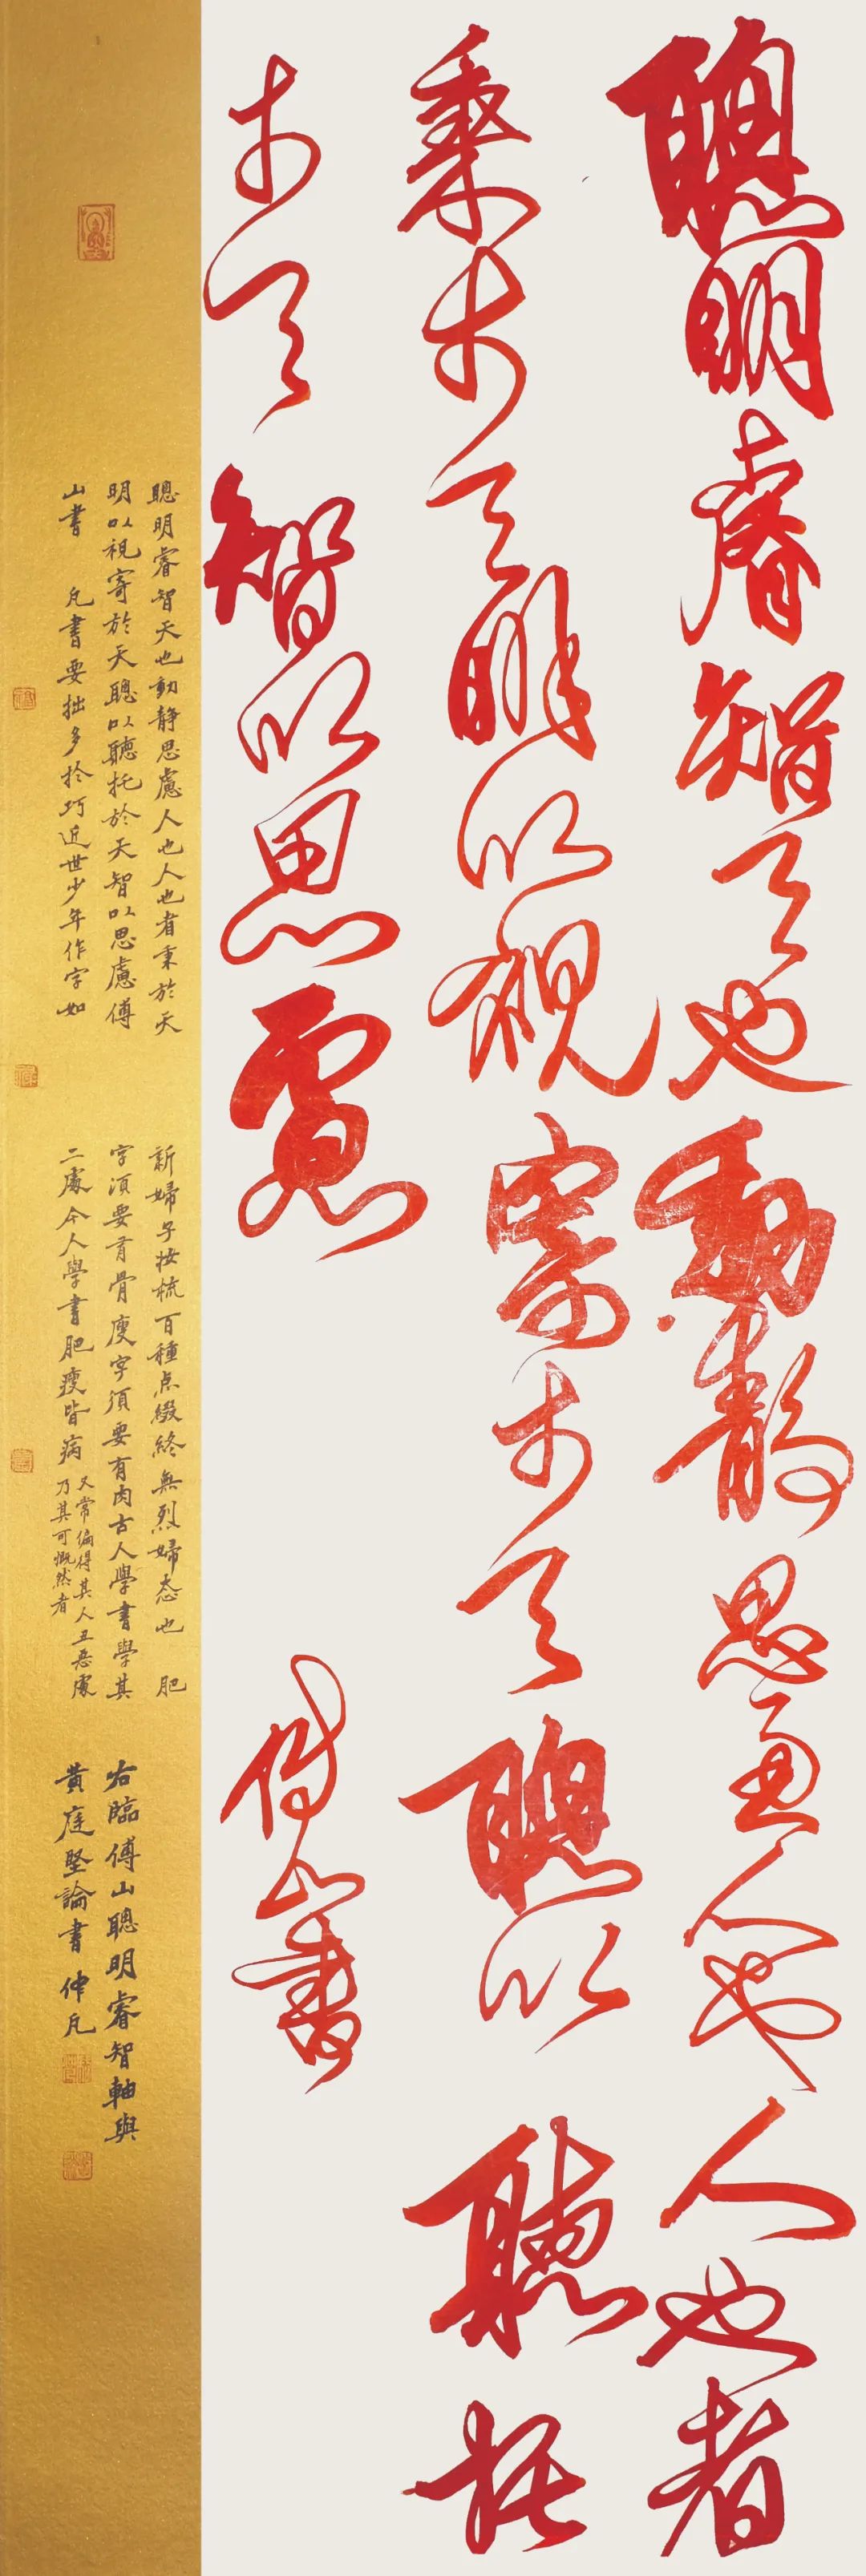 聰明睿智天也動靜思慮人也人也者
秉於天明以視寄於天聰以聽托
於天智以思慮
傅山書
聰明睿智天也動静思慮人也人也者秉於天
明以視寄於天聰以聽托於天智以思慮傅
山書 凡書要拙多於巧近世少年作字如
新婦子妝梳百種点綴終無烈婦态也 肥
字須要有骨瘦字須要有肉古人學書學其
二處今人學書肥瘦皆病
又常偏得其人丑惡處
乃其可慨然者
右臨傅山聰明睿智軸與
黃庭堅論書仲凡